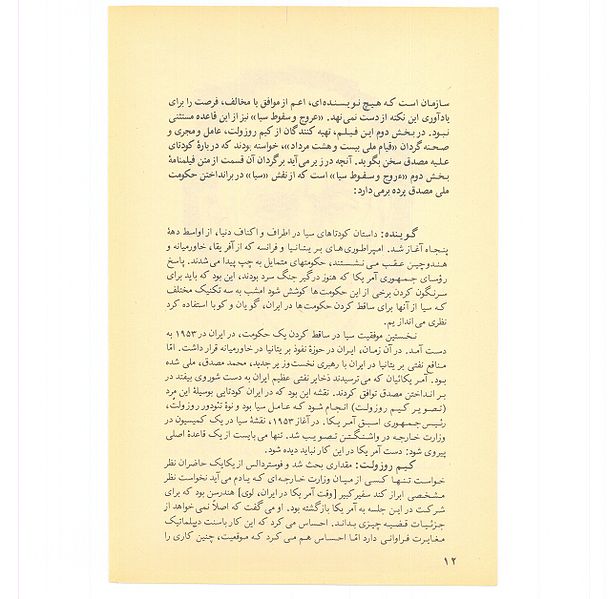 سازمان است که هیچ نویسنده‌ای، اعم از موافق یا مخالف، فرصت را برای
یادآوری این نکته از دست نمی‌نهد. «عروج و سقوط سیا» نیز از این قاعده مستثنی
نبود. در بخش دوم این فیلم، تهیه کنندگان از کیم روزولت، عامل و مجری و
صحنه گردان «قیام ملی بیست و هشت مرداد»، خواسته بودند که دربارهٔ کودتای
علیه مصدق سخن بگوید. آنچه در زیر می‌آید برگردان آن قسمت از متن فیلمنامهٔ
بخش دوم «عروج و سقوط سیا» است که از نقش «سیا» در برانداختن حکومت
ملی مصدق پرده برمی‌دارد:
گوینده: داستان کودتاهای سیا در اطراف و اکناف دنیا، از اواسط دههٔ
پنجاه آغاز شد. امپراطوری‌های بریتانیا و فرانسه که از آفریقا، خاورمیانه و
هندوچین عقب می‌نشستند، حکومتهای متمایل به چپ پیدا می‌شدند. پاسخ
رؤسای جمهوری آمریکا که هنوز درگیر جنگ سرد بودند، این بود که باید برای
سرنگون کردن برخی از این حکومت‌ها کوشش شود امشب به سه تکنیک مختلف
که سیا از آنها برای ساقط کردن حکومت‌ها در ایران، گویان و کوبا استفاده کرد
نظری می‌اندازیم.
نخستین موفقیت سیا در ساقط کردن یک حکومت، در ایران در ۱۹۵۳ به
دست آمد. در آن زمان، ایران در حوزهٔ نفوذ بریتانیا در خاورمیانه قرار داشت. امّا
منافع نفتی بریتانیا در ایران با رهبری نخست‌وزیر جدید، محمد مصدق، ملی شده
بود. آمریکائیان که می‌ترسیدند ذخایر نفتی عظیم ایران به دست شوروی بیفتد در
برانداختن مصدق توافق کردند. نقشه این بود که در ایران کودتایی بوسیلهٔ این مرد
(تصویر کیم روزولت) انجام شود که عامل سیا بود و نوهٔ تئودور روزولت،
رئیس جمهوری اسبق آمریکا. در آغاز ۱۹۵۳، نقشهٔ سیا در یک کمیسیون در
وزارت خارجه در واشنگتن تصویب شد. تنها می‌بایست از یک قاعدهٔ اصلی
پیروی شود: دست آمریکا در این کار نباید دیده شود.
کیم روزولت: مقداری بحث شد و فوستر دالس از یکایک حاضران نظر
خواست تنها کسی از میان وزارت خارجه‌ای که یادم می‌آید نخواست نظر
مشخصی ابراز کند سفیر کبیر [وقت آمریکا در ایران، لوی] هندرسن بود که برای
شرکت در این جلسه به آمریکا بازگشته بود. او می‌گفت که اصلاً نمی‌خواهد از
جزئیات قضیه چیزی بداند. احساس می‌کرد که این کار باسنت دیپلماتیک
مغایرت فراوانی دارد امّا احساس هم می‌کرد که موقعیت، چنین کاری را
۱۲